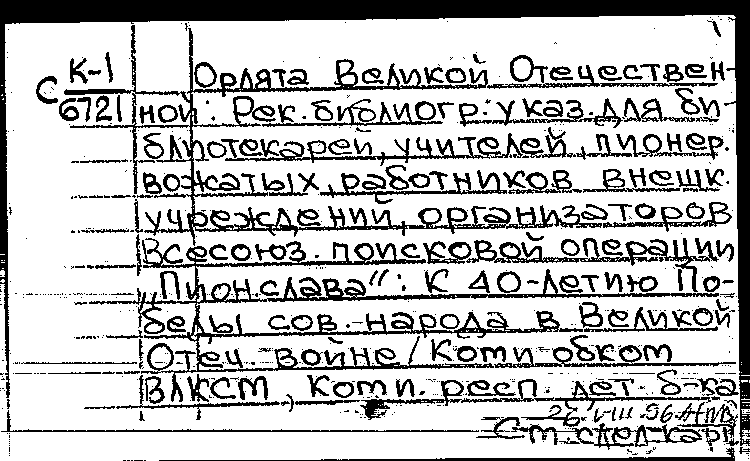 К-1
С 6721
Орлята Великой Отечествен-
ной: Рек. библиогр. указ. для би-
блиотекарей, учителей, пионер.
вожатых, работников внешк.
учреждений, организаторов
Всесоюз. поисковой операции
„Пион. слава“: К 40-летию По-
беды сов. народа в Великой
Отеч. войне / Коми обком
ВЛКСМ, Коми. респ. дет. б-ка
См. след. карт